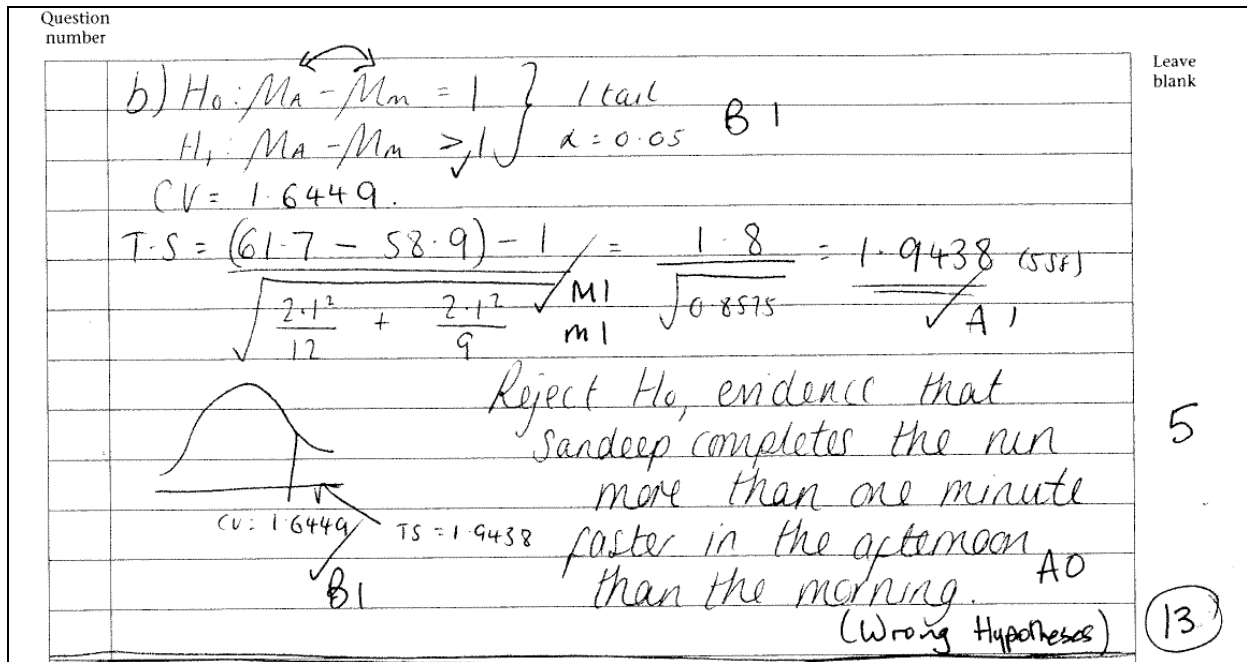 Question
number
Leave
blank
b) H₀: μA - μm = 1 } 1 tail
H₁: μA - μm > 1 } α = 0.05 B1
CV = 1.6449.
T.S = (61.7 - 58.9) - 1 / √(2.1²/12 + 2.1²/9) = 1.8 / √0.8575 = 1.9438 (5sf)
M1
m1
A1
Reject H₀, evidence that
Sandeep completes the run
more than one minute
faster in the afternoon
than the morning. A0
CV = 1.6449 TS = 1.9438
B1
(Wrong Hypotheses)
5
13